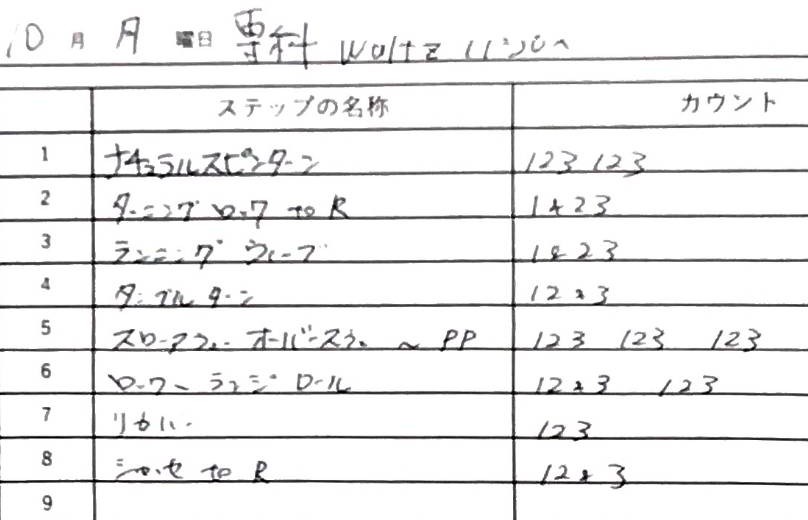 10月 月 曜日 専科 Waltz
ステップの名称 カウント
1 ナチュラルスピンターン 123 123
2 ターニングロック to R 1&23
3 ランニング ウィーブ 1&23
4 ダブル ターン 12&3
5 スローアウェー オーバースウェー ~ PP 123 123 123
6 ロック~ランジ ロール 12&3 123
7 123
8 シャッセ to R 12&3
9